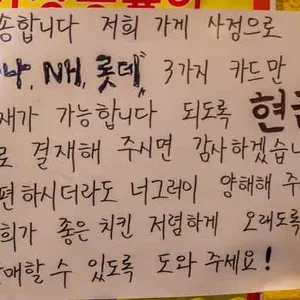 송합니다 저희 가게 사정으로
나, NH, 롯데" 3가지 카드만
재가 가능합니다 되도록 현금
로 결재해 주시면 감사하겠습니
편하시더라도 너그러이 양해해 주
희가 좋은 치킨 저렴하게 오래도록
매할 수 있도록 도와 주세요!